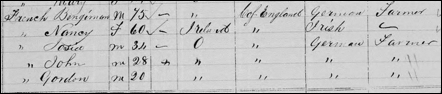 French Benjiman M 75 C of England German Farmer
" Nancy F 60 Ireland " Irish
" Josie M 34 O " German Farmer
" John M 28 " " "
" Gordon M 20 " " "